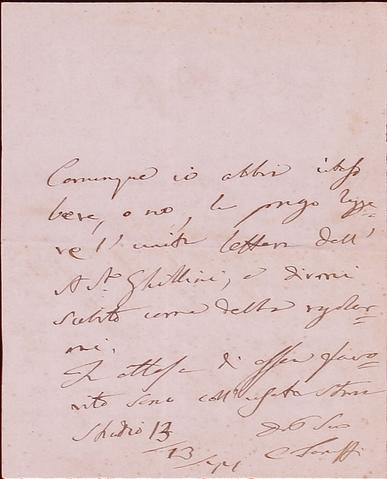 Comunque io abbia inteso
bene, o no, la prego legge-
re l'unita lettera dell'
A. Ghillini, e dirmi
subito come debba regolar-
mi.
In attesa di esser favo-
rito sono coll'usata stima
Studio 13
Suo